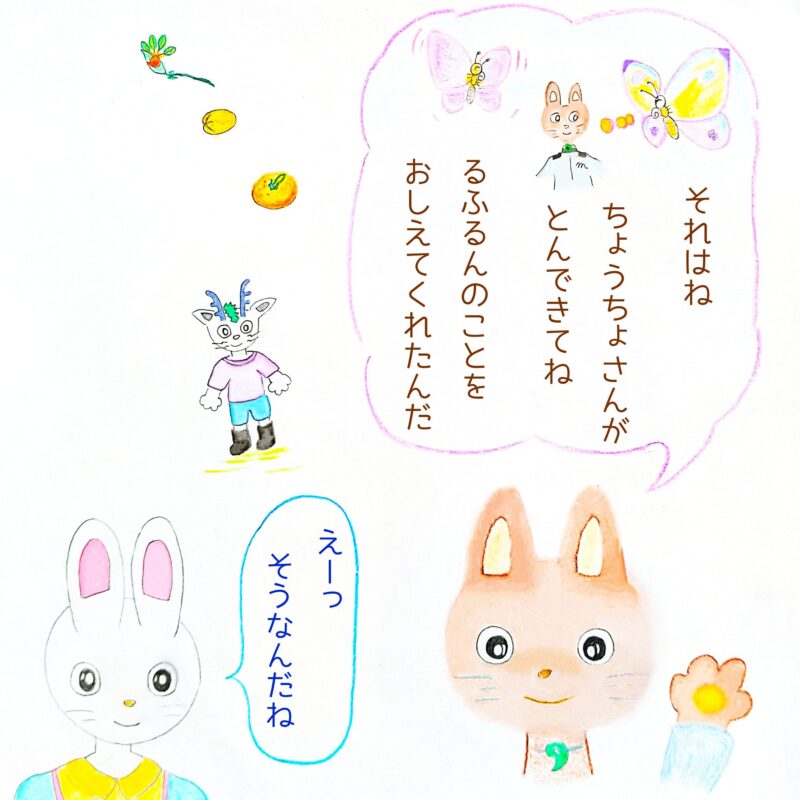 それはね
ちょうちょさんが
とんできてね
るふるんのことを
おしえてくれたんだ
えーっ
そうなんだね